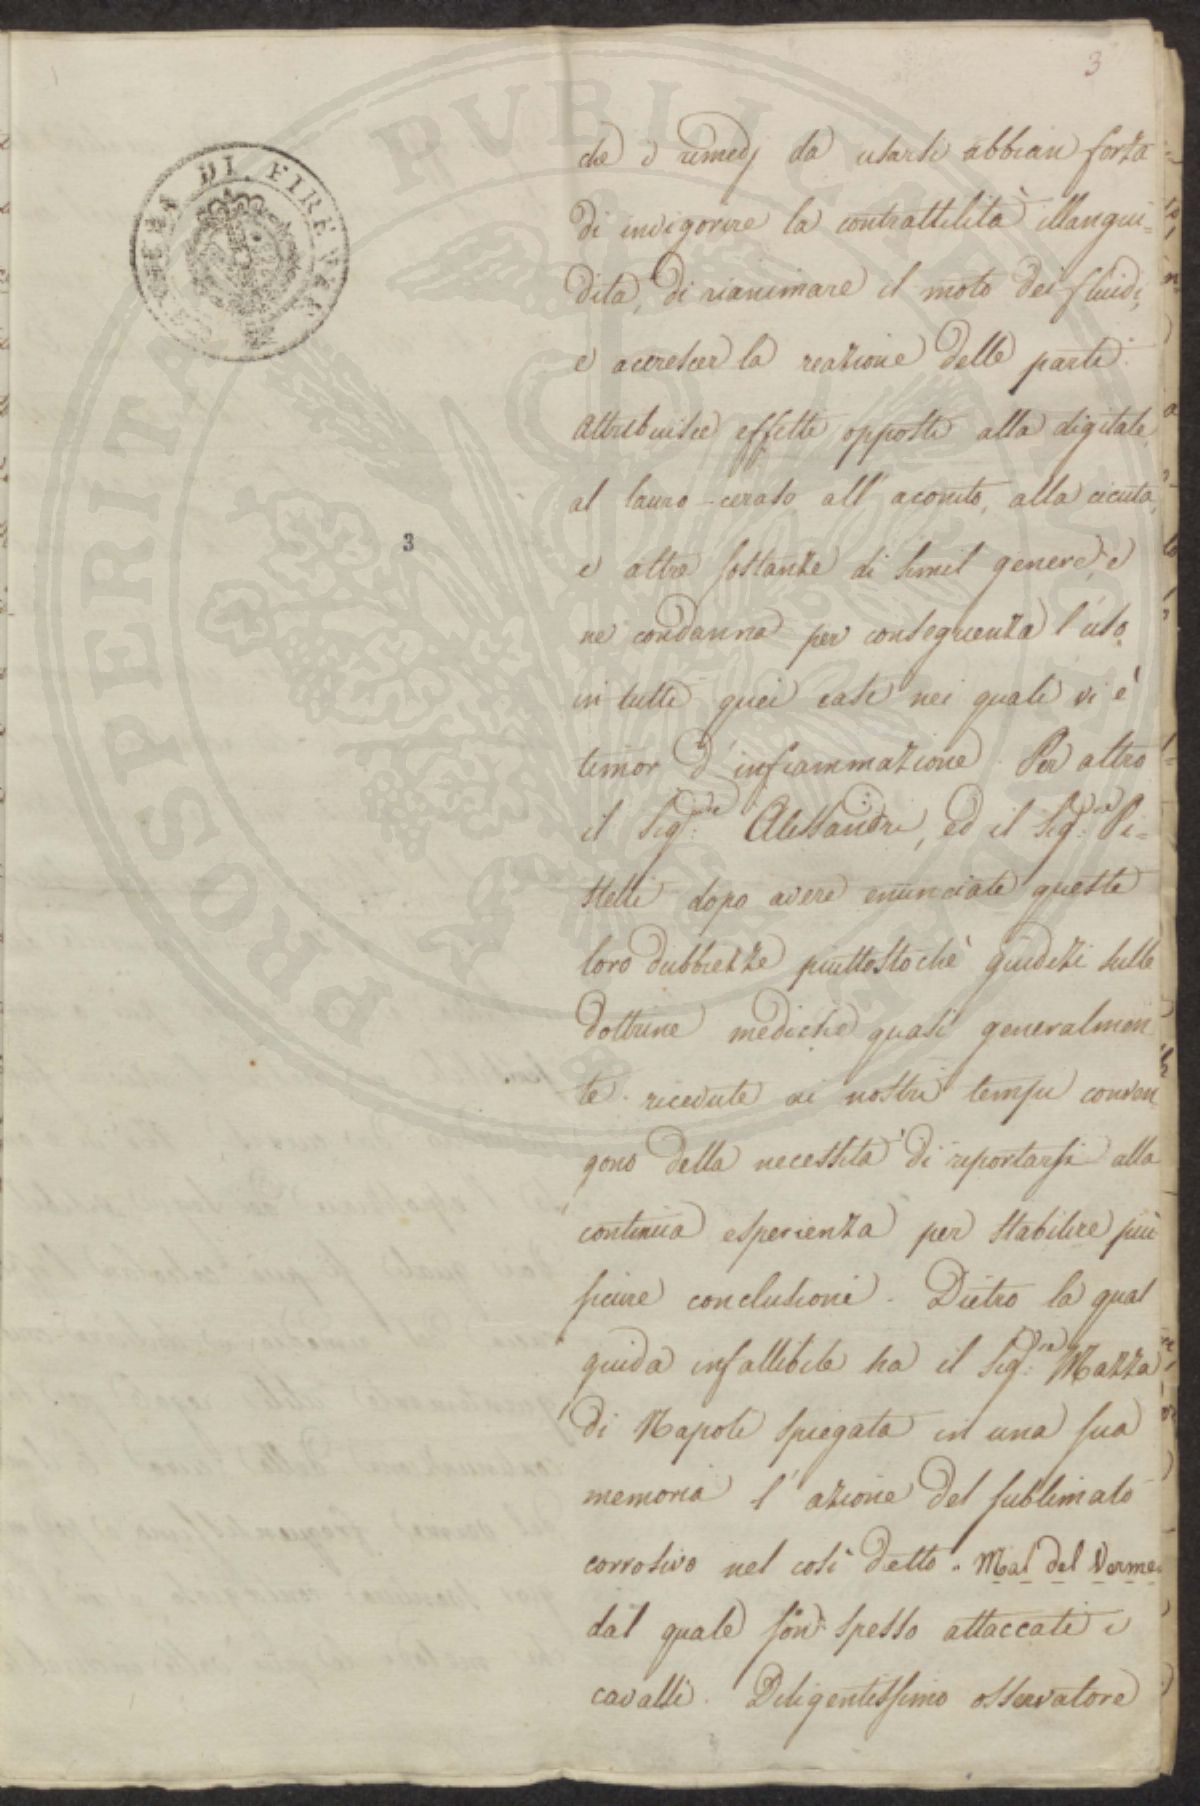 3
che i rimedj da usarsi abbian forza
di invigorire la contrattilità illangui=
dita, di rianimare il moto dei fluidi,
e accrescer la reazione delle parti.
Attribuisce effetti opposti alla digitale,
al lauro-ceraso, all'aconito, alla cicuta,
e altre sostanze di simil genere, e
ne condanna per conseguenza l'uso
in tutti quei casi nei quali vi è
timor d'infiammazione. Per altro
il Sig.re Alessandri, ed il Sig.re Pi=
stelli dopo avere enunciate queste
loro dubbiezze piuttostochè giudizi sulle
dottrine mediche quasi generalmen
te ricevute ai nostri tempi conven
gono della necessità di riportarsi alla
continua esperienza per stabilire più
sicure conclusioni. Dietro la qual
guida infallibile ha il Sig.re Mazza
di Napoli spiegata in una sua
memoria l'azione del sublimato
corrosivo nel così detto. Mal del Verme
dal quale son spesso attaccati i
cavalli. Diligentissimo osservatore
3
DI FIRENZE
PROSPERITATI PUBLICAE